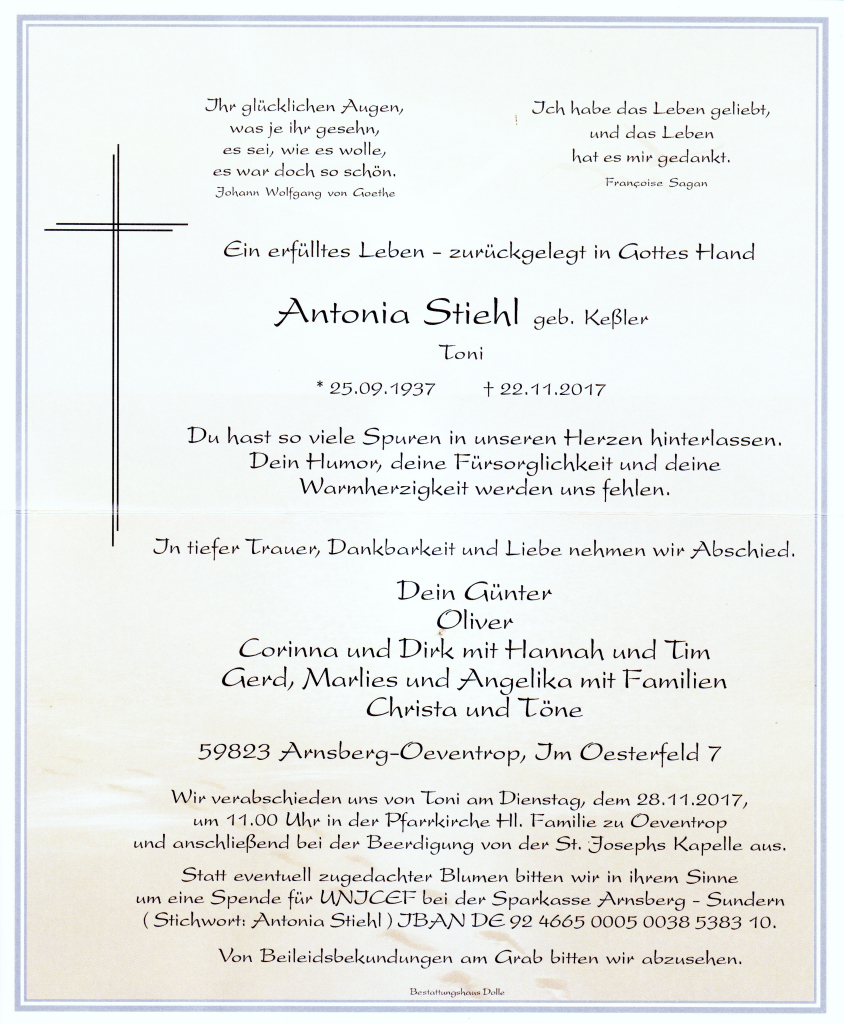 Ihr glücklichen Augen,
was je ihr gesehn,
es sei, wie es wolle,
es war doch so schön.
Johann Wolfgang von Goethe
Ich habe das Leben geliebt,
und das Leben
hat es mir gedankt.
Françoise Sagan
Ein erfülltes Leben - zurückgelegt in Gottes Hand
Antonia Stiehl geb. Keßler
Toni
* 25.09.1937 † 22.11.2017
Du hast so viele Spuren in unseren Herzen hinterlassen.
Dein Humor, deine Fürsorglichkeit und deine
Warmherzigkeit werden uns fehlen.
In tiefer Trauer, Dankbarkeit und Liebe nehmen wir Abschied.
Dein Günter
Oliver
Corinna und Dirk mit Hannah und Tim
Gerd, Marlies und Angelika mit Familien
Christa und Töne
59823 Arnsberg-Oeventrop, Im Oesterfeld 7
Wir verabschieden uns von Toni am Dienstag, dem 28.11.2017,
um 11.00 Uhr in der Pfarrkirche Hl. Familie zu Oeventrop
und anschließend bei der Beerdigung von der St. Josephs Kapelle aus.
Statt eventuell zugedachter Blumen bitten wir in ihrem Sinne
um eine Spende für UNICEF bei der Sparkasse Arnsberg - Sundern
( Stichwort: Antonia Stiehl ) IBAN DE 92 4665 0005 0038 5383 10.
Von Beileidsbekundungen am Grab bitten wir abzusehen.
Bestattungshaus Dolle